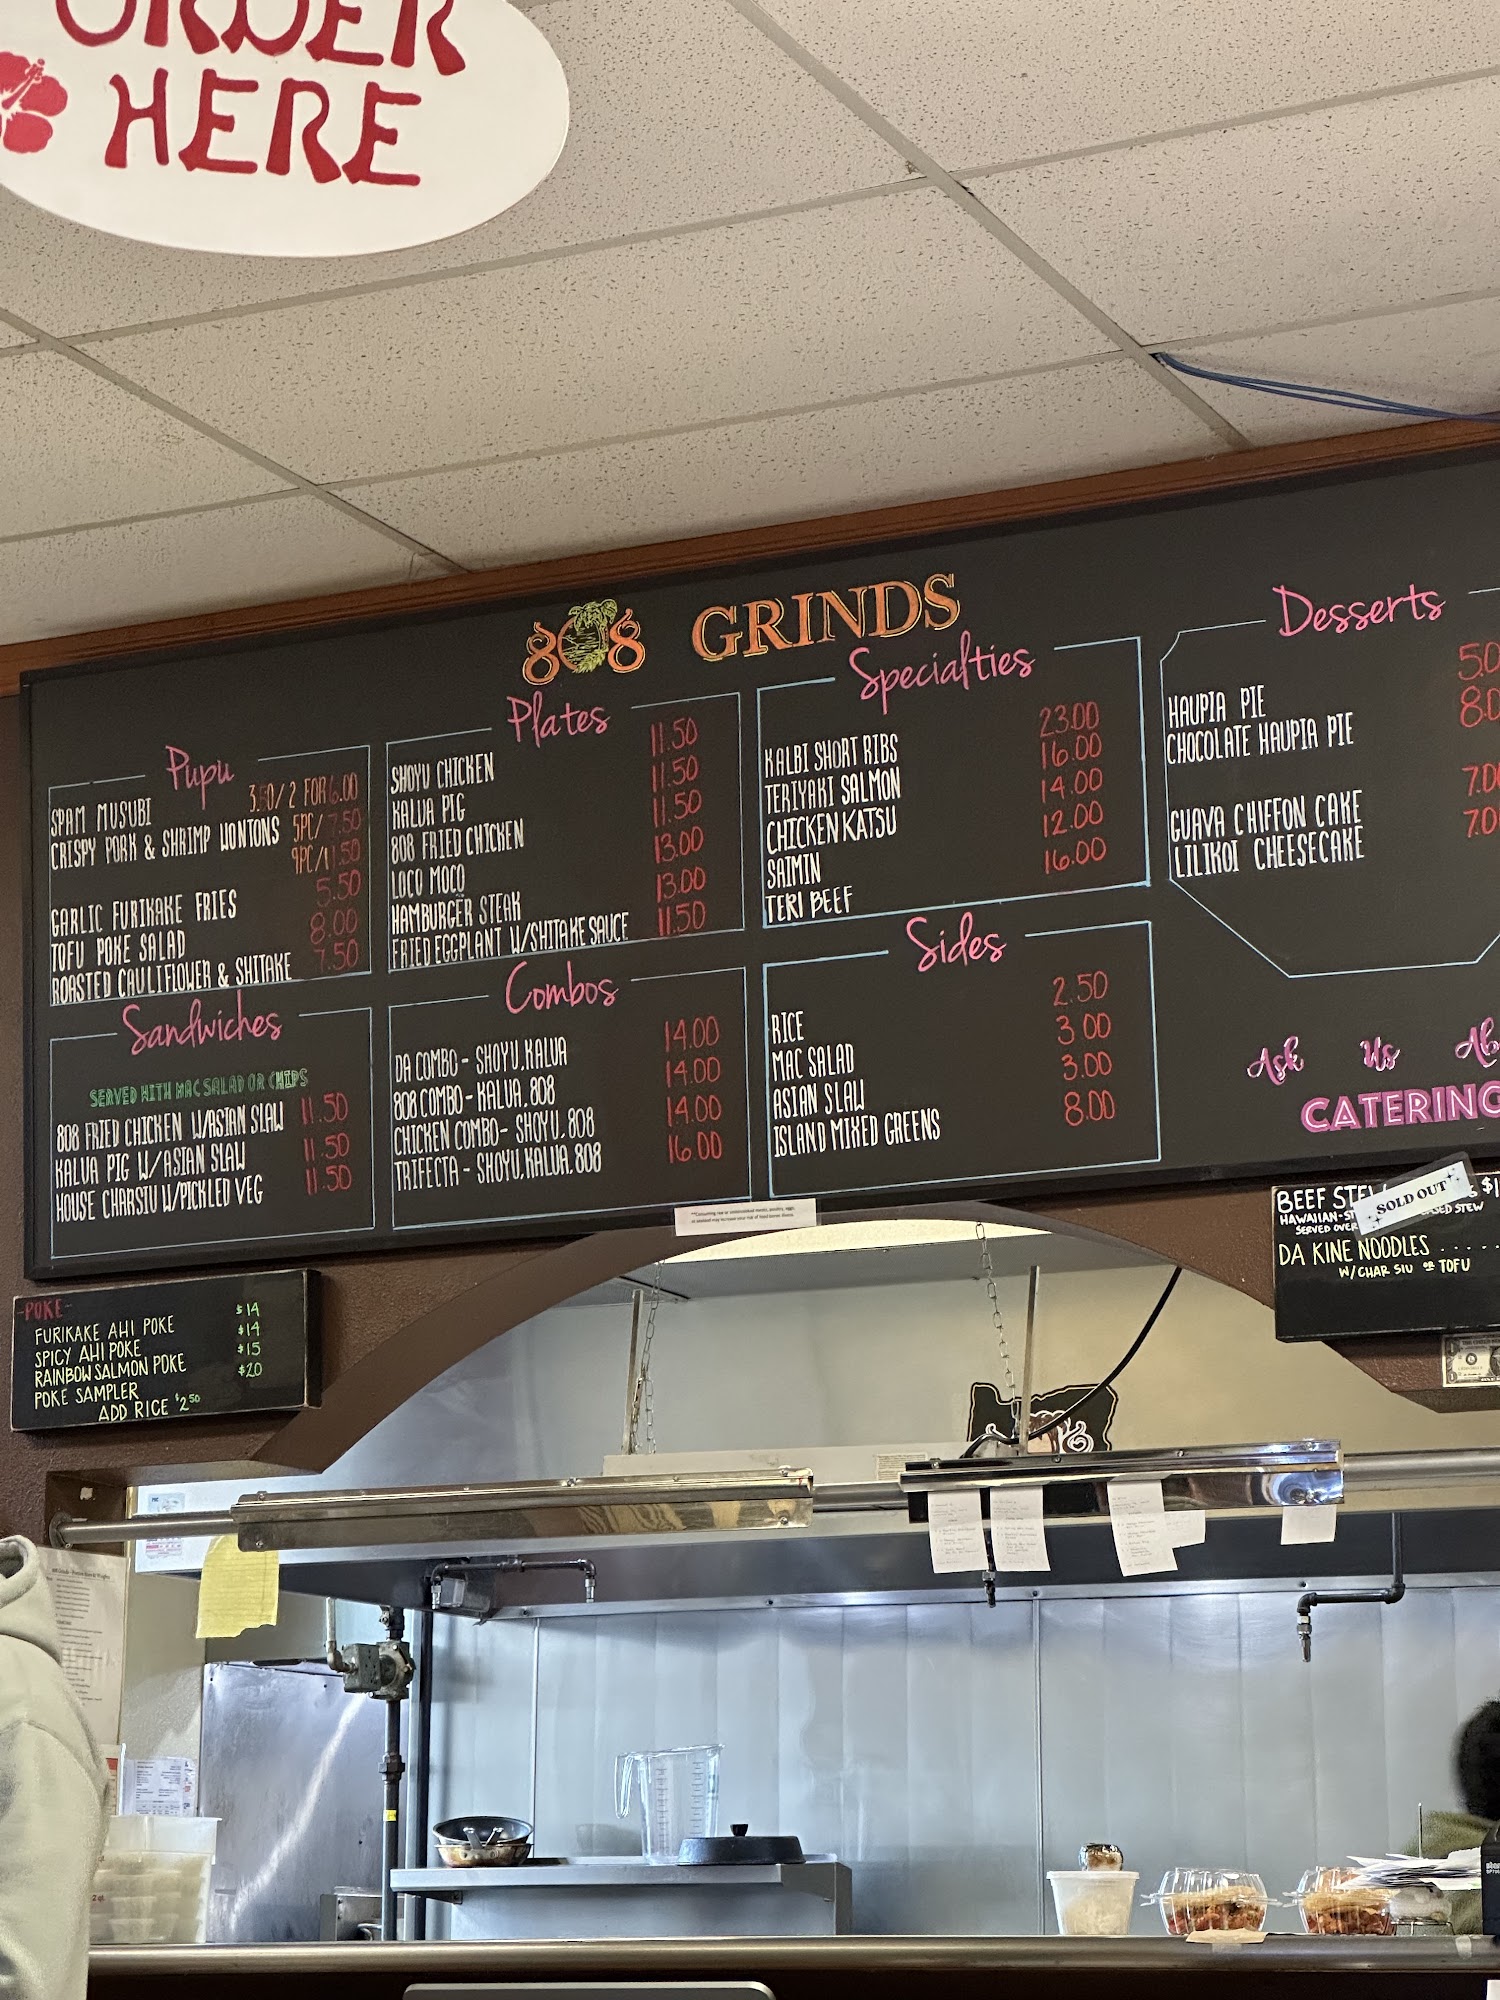 ORDER
HERE
808 GRINDS
Pupu
SPAM MUSUBI 3.50/2 FOR 6.00
CRISPY PORK & SHRIMP WONTONS 5PC/7.50
9PC/11.50
GARLIC FURIKAKE FRIES 5.50
TOFU POKE SALAD 8.00
ROASTED CAULIFLOWER & SHITAKE 7.50
Sandwiches
SERVED WITH MAC SALAD OR CHIPS
808 FRIED CHICKEN W/ASIAN SLAW 11.50
KALUA PIG W/ASIAN SLAW 11.50
HOUSE CHARSIU W/PICKLED VEG 11.50
Plates
SHOYU CHICKEN 11.50
KALUA PIG 11.50
808 FRIED CHICKEN 11.50
LOCO MOCO 13.00
HAMBURGER STEAK 13.00
FRIED EGGPLANT W/SHITAKE SAUCE 11.50
Combos
DA COMBO - SHOYU, KALUA 14.00
808 COMBO - KALUA, 808 14.00
CHICKEN COMBO - SHOYU, 808 14.00
TRIFECTA - SHOYU, KALUA, 808 16.00
Specialties
KALBI SHORT RIBS 23.00
TERIYAKI SALMON 16.00
CHICKEN KATSU 14.00
SAIMIN 12.00
TERI BEEF 16.00
Sides
RICE 2.50
MAC SALAD 3.00
ASIAN SLAW 3.00
ISLAND MIXED GREENS 8.00
Desserts
HAUPIA PIE 5.0
CHOCOLATE HAUPIA PIE 8.0
GUAVA CHIFFON CAKE 7.0
LILIKOI CHEESECAKE 7.0
Ask Us Ab
CATERING
-POKE-
FURIKAKE AHI POKE $14
SPICY AHI POKE $14
RAINBOW SALMON POKE $15
POKE SAMPLER $20
ADD RICE $2.50
BEEF STE
SOLD OUT
HAWAIIAN-ST SED STEW
SERVED OVER
DA KINE NOODLES .....
W/CHAR SIU OR TOFU